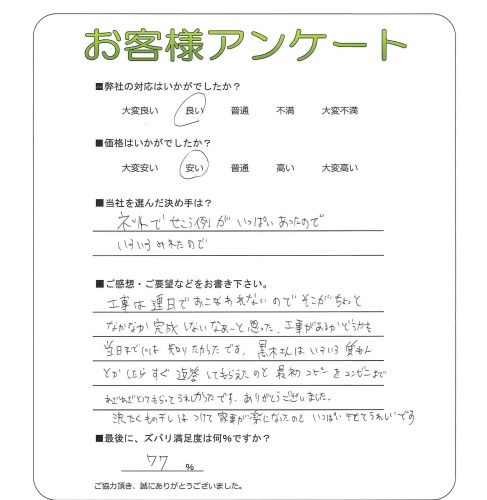 お客様アンケート
■弊社の対応はいかがでしたか？
大変良い 良い 普通 不満 大変不満
■価格はいかがでしたか？
大変安い 安い 普通 高い 大変高い
■当社を選んだ決め手は？
ネットでせこう例がいっぱいあったので
いろいろ めれたので
■ご感想・ご要望などをお書き下さい。
工事は連日でおこなわれないのでそこがちょっと
なかなか完成しないなぁーと思った、工事があるかどうかも
当日までには知りたかったです。黒木さんはいろいろ質もん
とかしたらすぐ返答してもらえたのと最初コピーをコンビニまで
わざわざとてもらってうれしかったです。ありがとうございました。
洗たくもの干しはつけて家事が楽になったのといっぱい干せてうれしいです
■最後に、ズバリ満足度は何%ですか？
77 %
ご協力頂き、誠にありがとうございました。